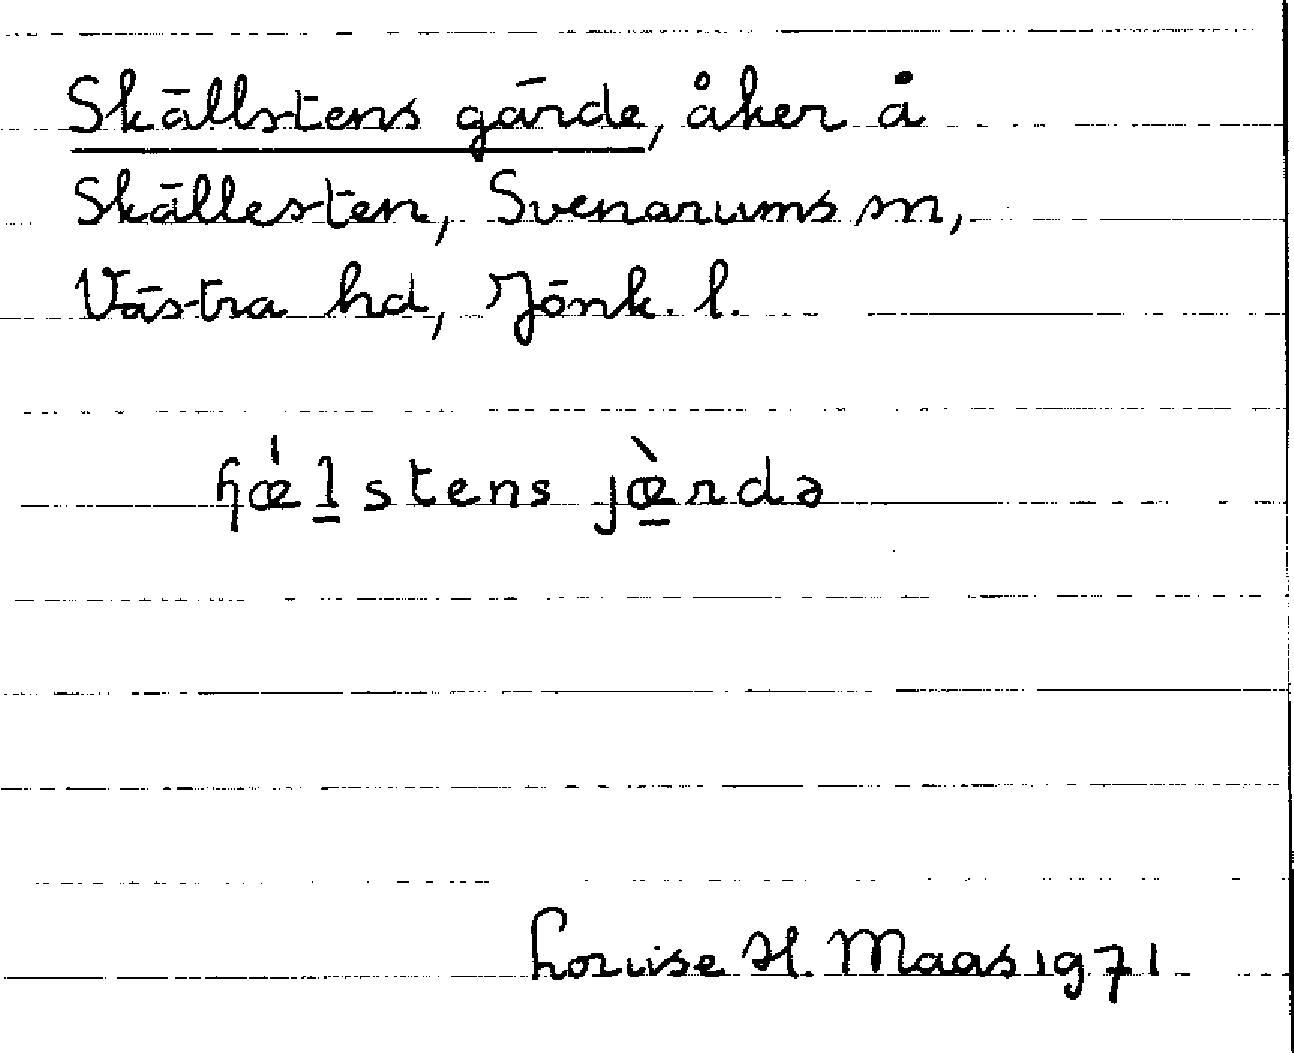 Skällstens gärde, åker å
Skällesten, Svenarums sn,
Västra hd, Jönk. l.
ɧœ́l̲stens jœ̲̀rdə
Louise H. Maas 1971